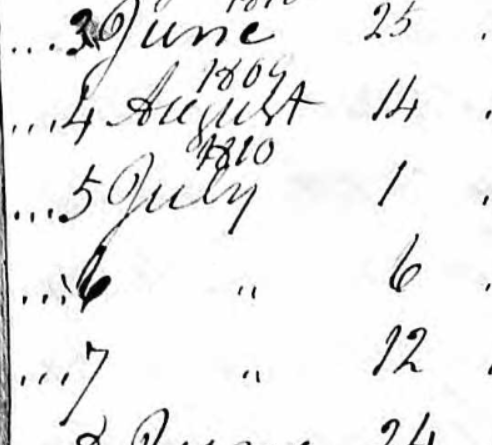 ...3 June 25 .
1809
...4 August 14 .
1810
...5 July 1 .
...6 " 6 .
...7 " 12 .
24